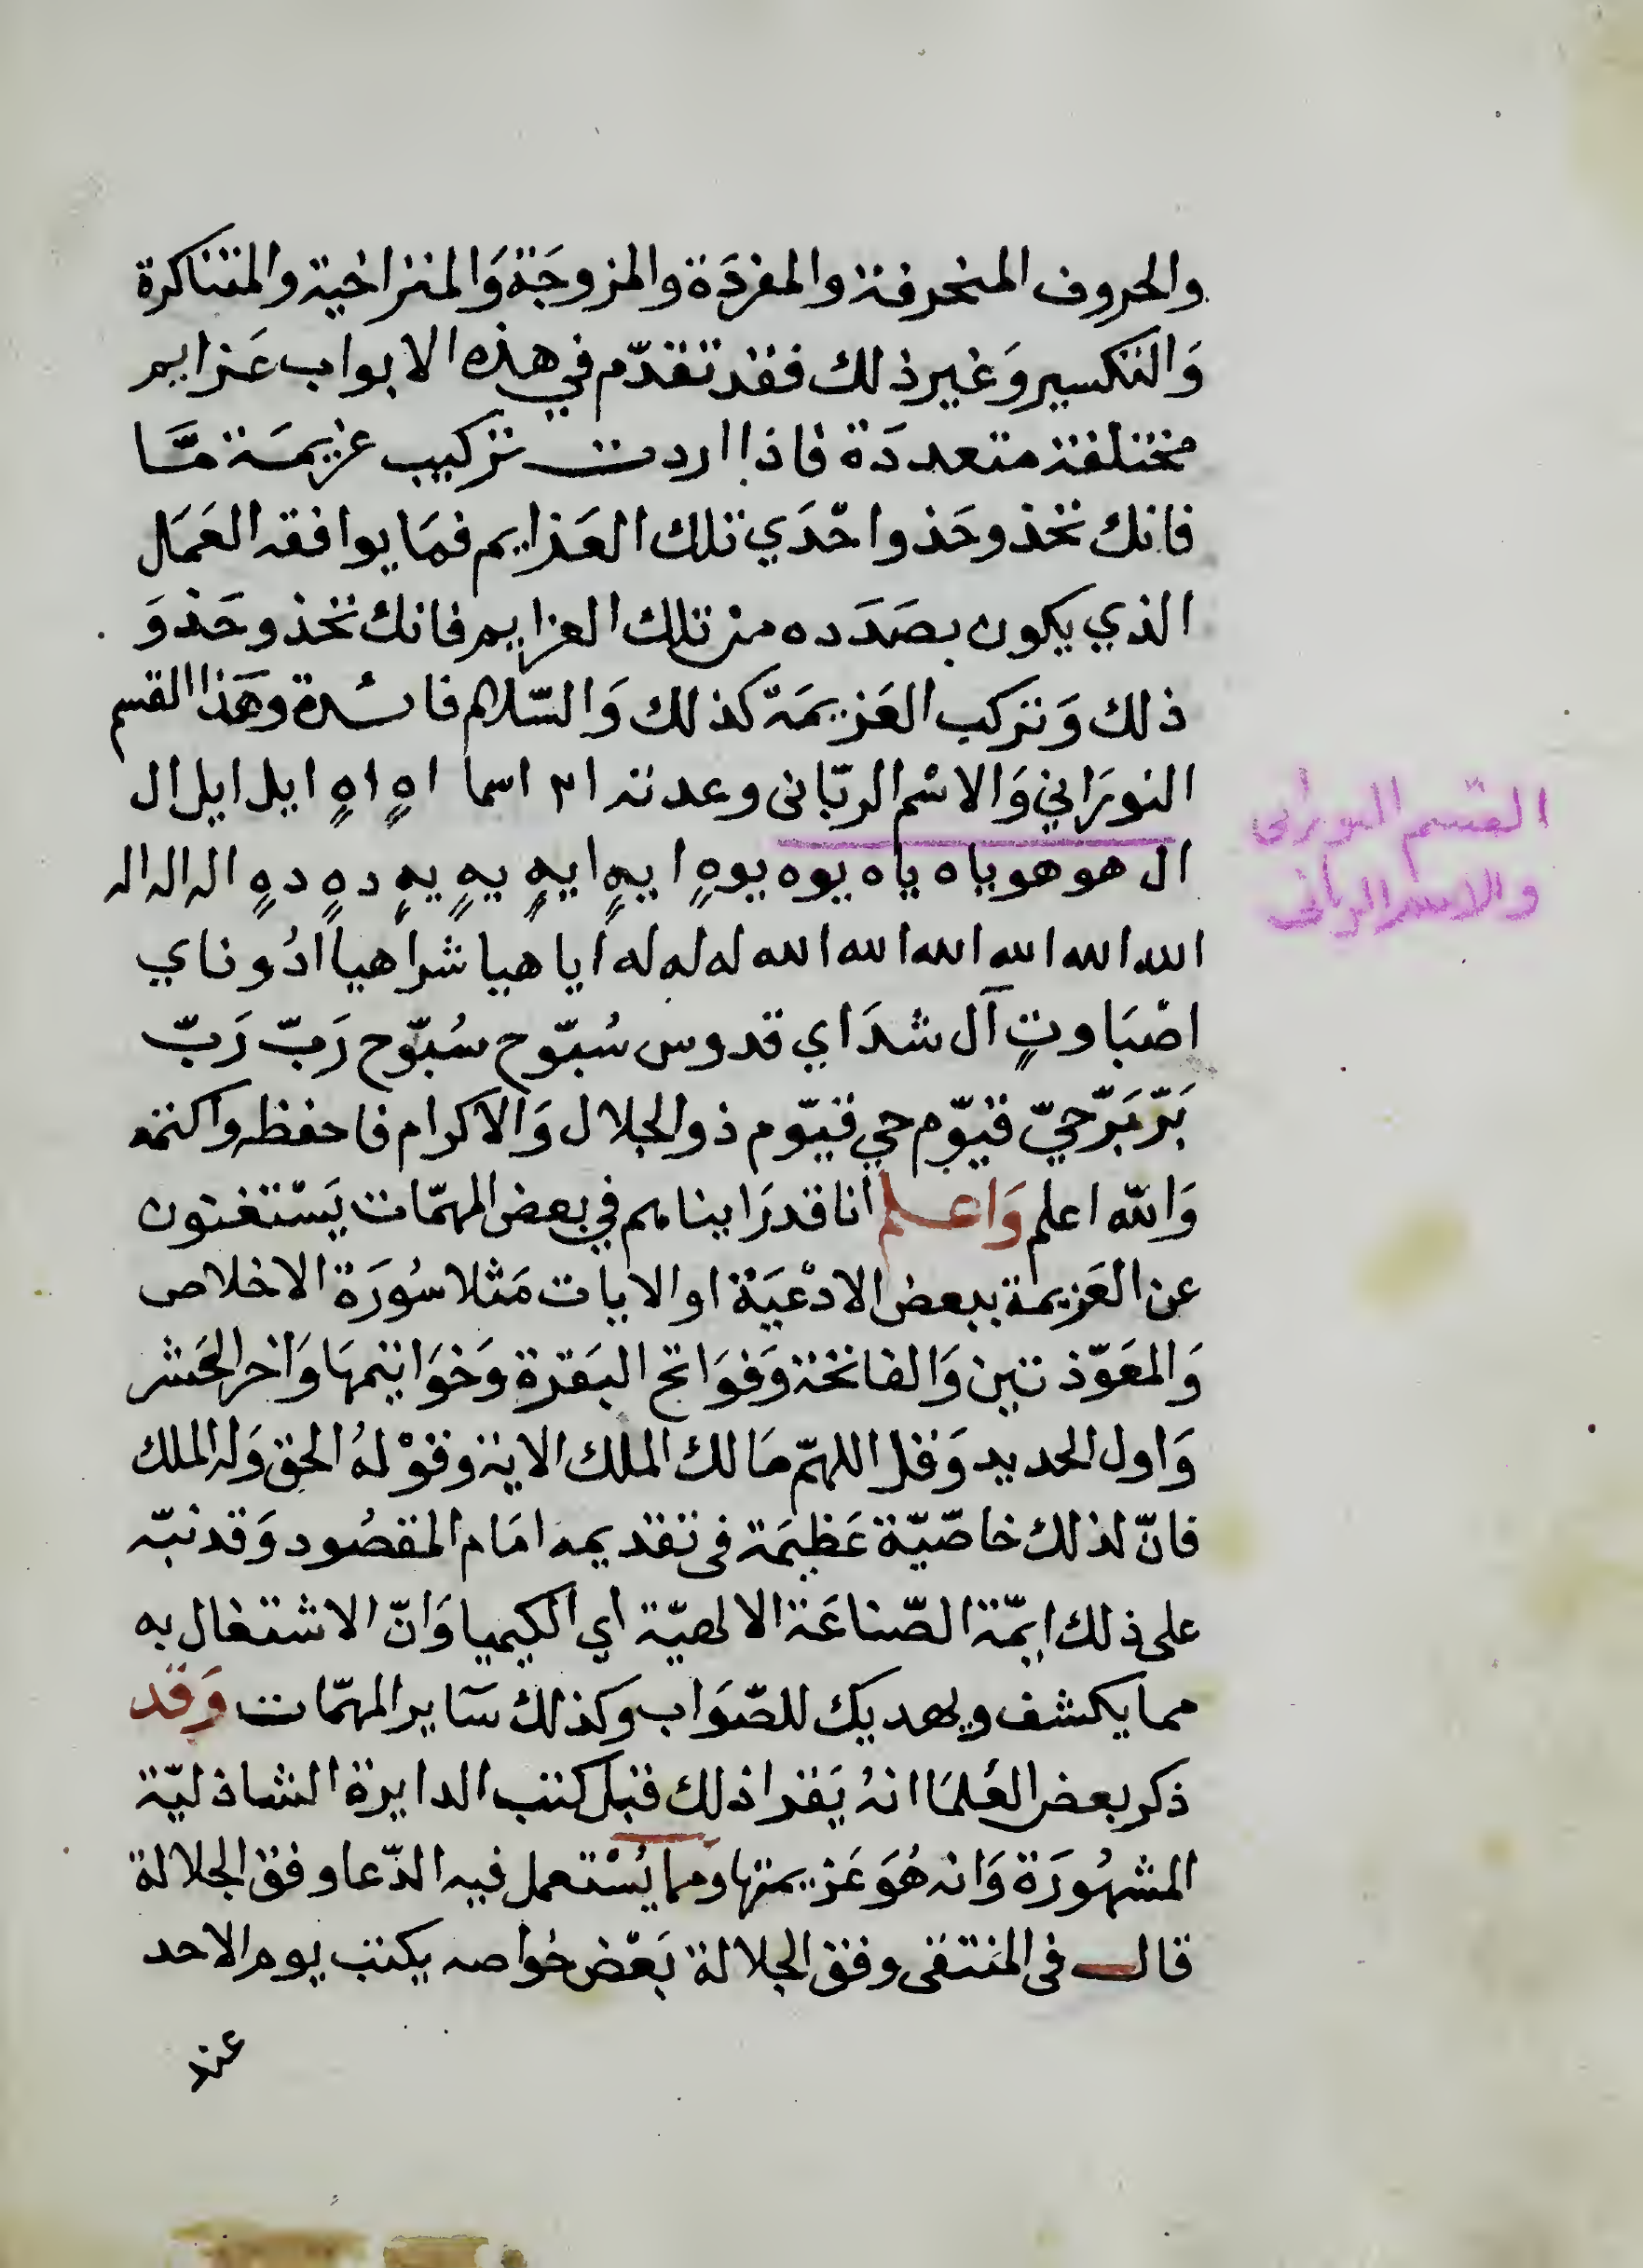 والحروف المنحرفة والمفردَة والمزوجَة وَالمتراخية والمتناكرة
وَالتكسير وَغير ذلك فقد تقدّم في هذه الابواب عَزايم
مختلفة متعددَة فاذا اردت تركيب عزيمَة مَّا
فانك تحذو حَذو احْدَي تلك العَذايم فمَا يوافقه العَمَل
الذي يكون بصَدَده من تلك العزايم فانك تحذو حَذوَ
ذلك وَتركب العَزيمَة كذلك وَالسّلام فائدة وهَذا القسم
النورَاني وَالاسْم الربّانى وعدته ٤١ اسما اهٍ اهٍ ايل ايل ال
ال هو هو ياه ياه يوه يوهٍ ايهٍ ايهٍ يهٍ يهٍ دهٍ دهٍ اله اله اله
الله الله الله الله الله الله له له له ايا هيا شراهيا ادُوناي
اصْبَاوتٍ آل شدَاي قدوس سُبّوح سُبّوح رَبّ رَبّ
بَرّ بَرّ حيّ قيّوم حي قيّوم ذو الجلال وَالاكرام فاحفظه واكتمه
وَالله اعلم وَاعلم انا قد رَاينا هم في بعض المهمّات يَسْتغنون
عن العَزيمة ببعض الادْعيَة او الايات مَثلا سُورَة الاخلاص
وَالمعَوّذتين وَالفاتحة وَفوَاتح البَقرة وَخوَاتيمهَا وَاخر الحَشر
وَاول الحديد وَقل اللهمّ مَالك الملك الاية وقوْلهُ الحق وَله الملك
فانّ لذلك خاصّيّة عَظيمَة فى تقديمه امَام المقصُود وَقد نبّه
على ذلك ايمّة الصّناعَة الالهيّة اي الكيميا وَانّ الاشتغال به
مما يكشف ويهديك للصّوَاب وكذلك سَاير المهمّات وَقد
ذكر بعض العُلمَا انهُ يَقرا ذلك قبل كتب الدايرة الشاذليّة
المشهُورَة وَانه هُوَ عَزيمتها ومما يُسْتعمل فيه الدّعا وفق الجلالة
قال فى المنتقى وفق الجلالة بَعْض خواصه يكتب يوم الاحد
عند
القسم النورانى
والاسم الربانى